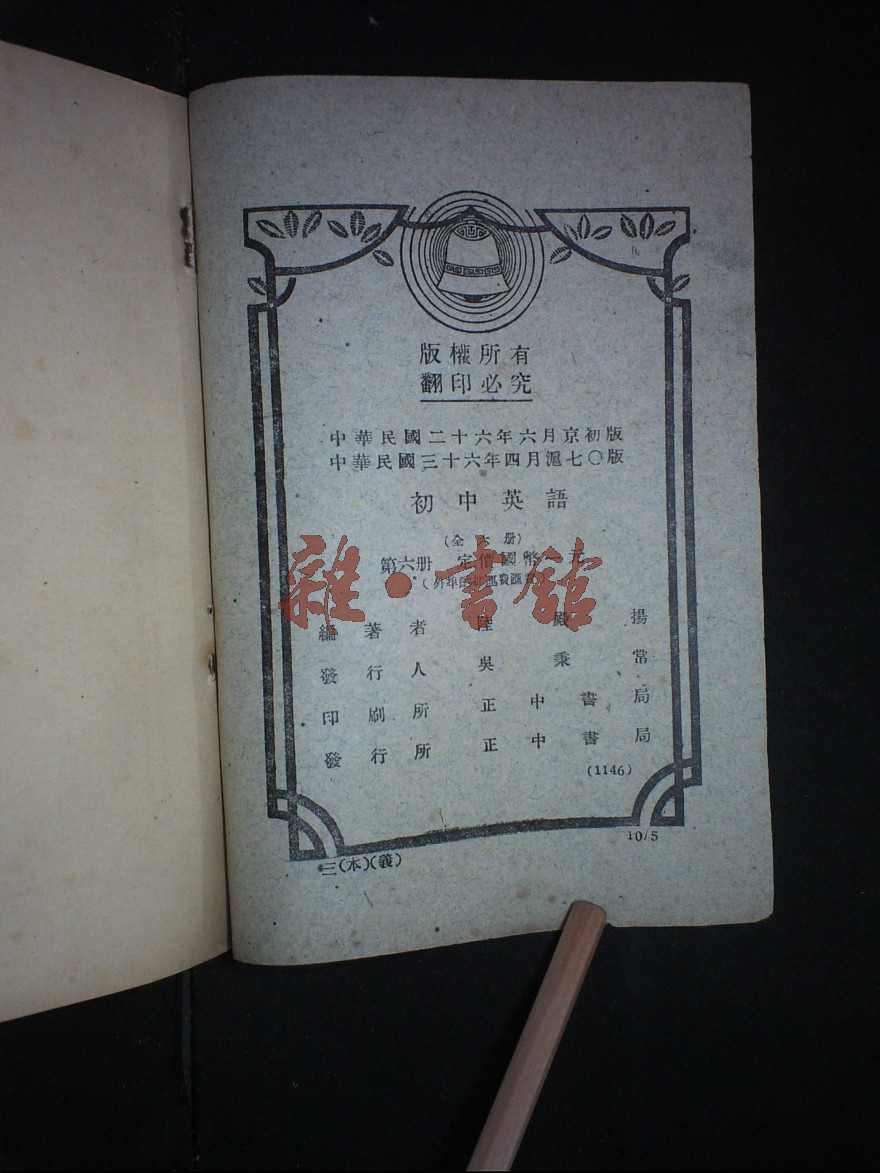 版權所有
翻印必究
中華民國二十六年六月京初版
中華民國三十六年四月滬七〇版
初中英語
(全六册)
第六册 定價國幣 元
(外埠酌加運費匯費)
編著者 陸殿揚
發行人 吳秉常
印刷所 正中書局
發行所 正中書局
(1146)
三(本)(義)
10/5
雜·書館